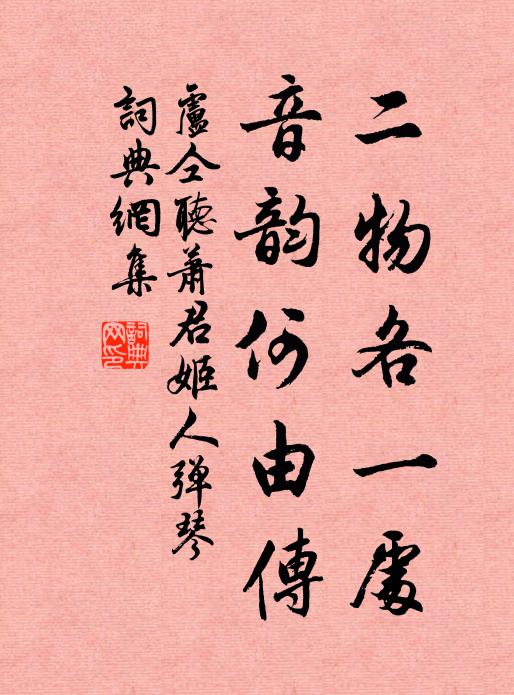 二物各一處
音韵何由傳
盧仝聽蕭君姬人彈琴
詞典網集
詞典網印